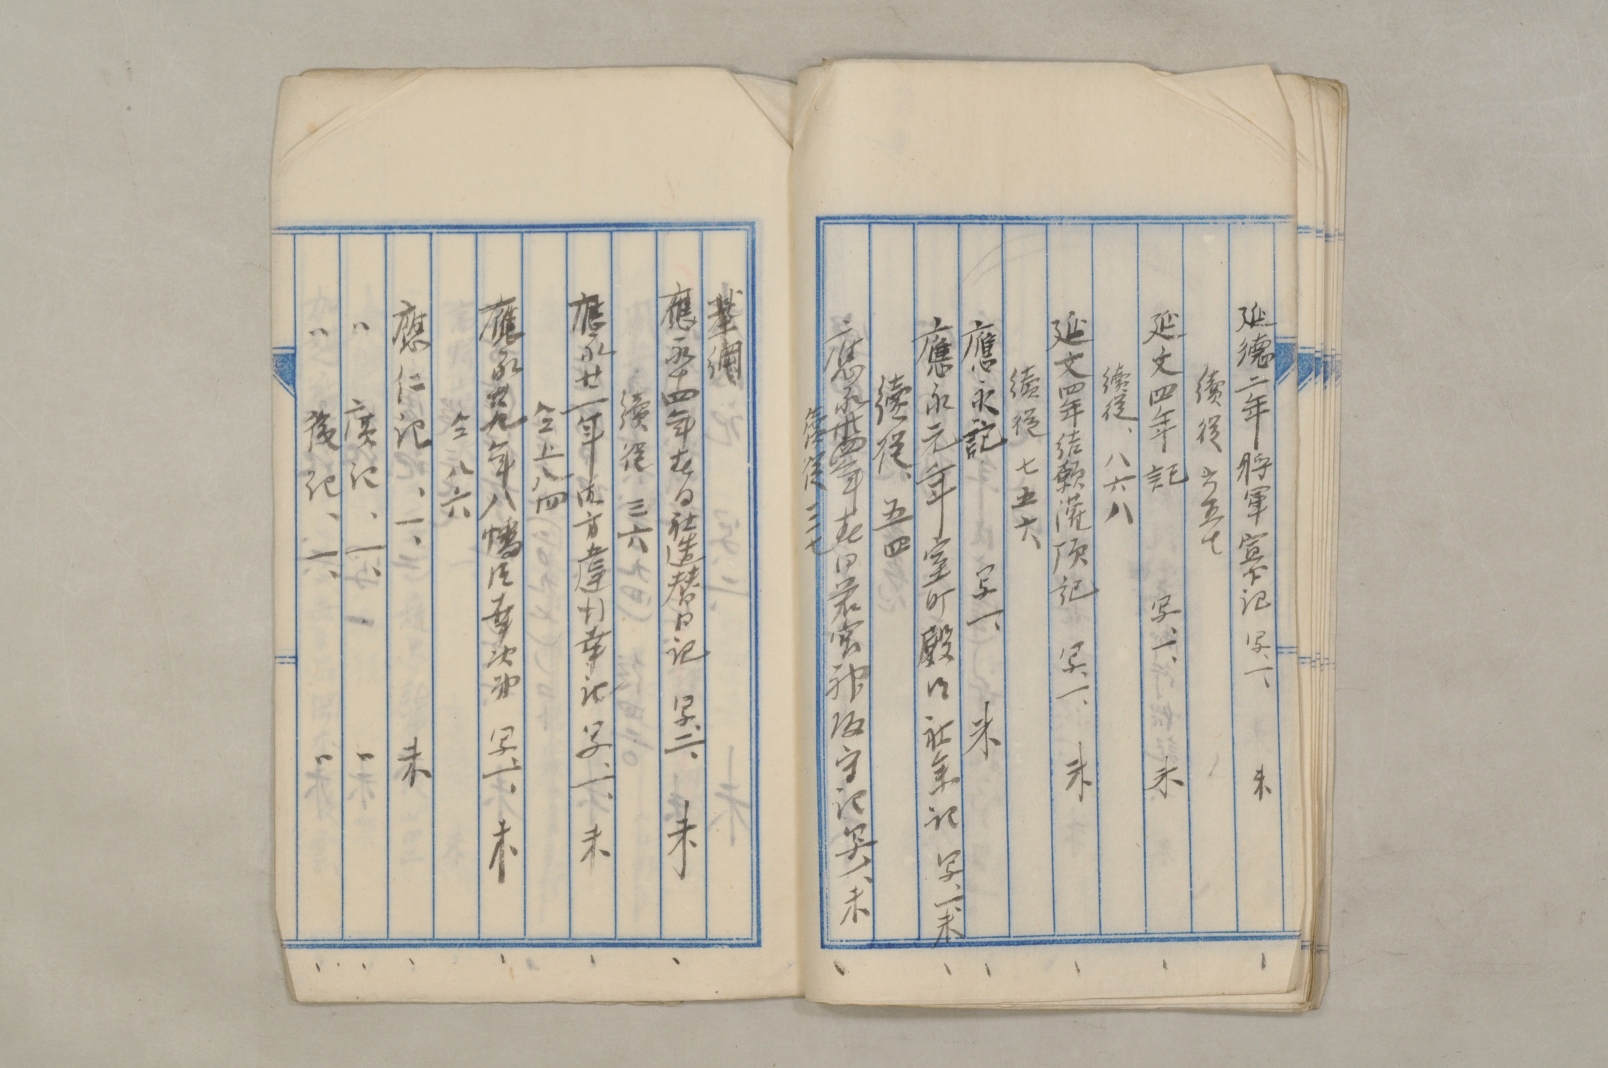 延德二年将軍宣下記 写、一、 未
續従 六五七
延文四年記 写、一、 未
續従、八六八
延文四年結願灌頂記 写、一、 未
續従 七五六
應永記 写一、 未
應永元年室町殿御社参記 写、一、未
續従、五四
應永廿四年春日若宮神殿守記 写、一、未
續従 三七
類稱
應永十四年春日社造替日記 写、二、 未
續従 三六
應永廿一年御方違行幸記 写、一、 未
仝上八四
應永十九年八幡御幸次第 写、一、 未
仝 八六
應仁記、一、 未
〃 廣記、一、 〃
〃 後記、一、 〃